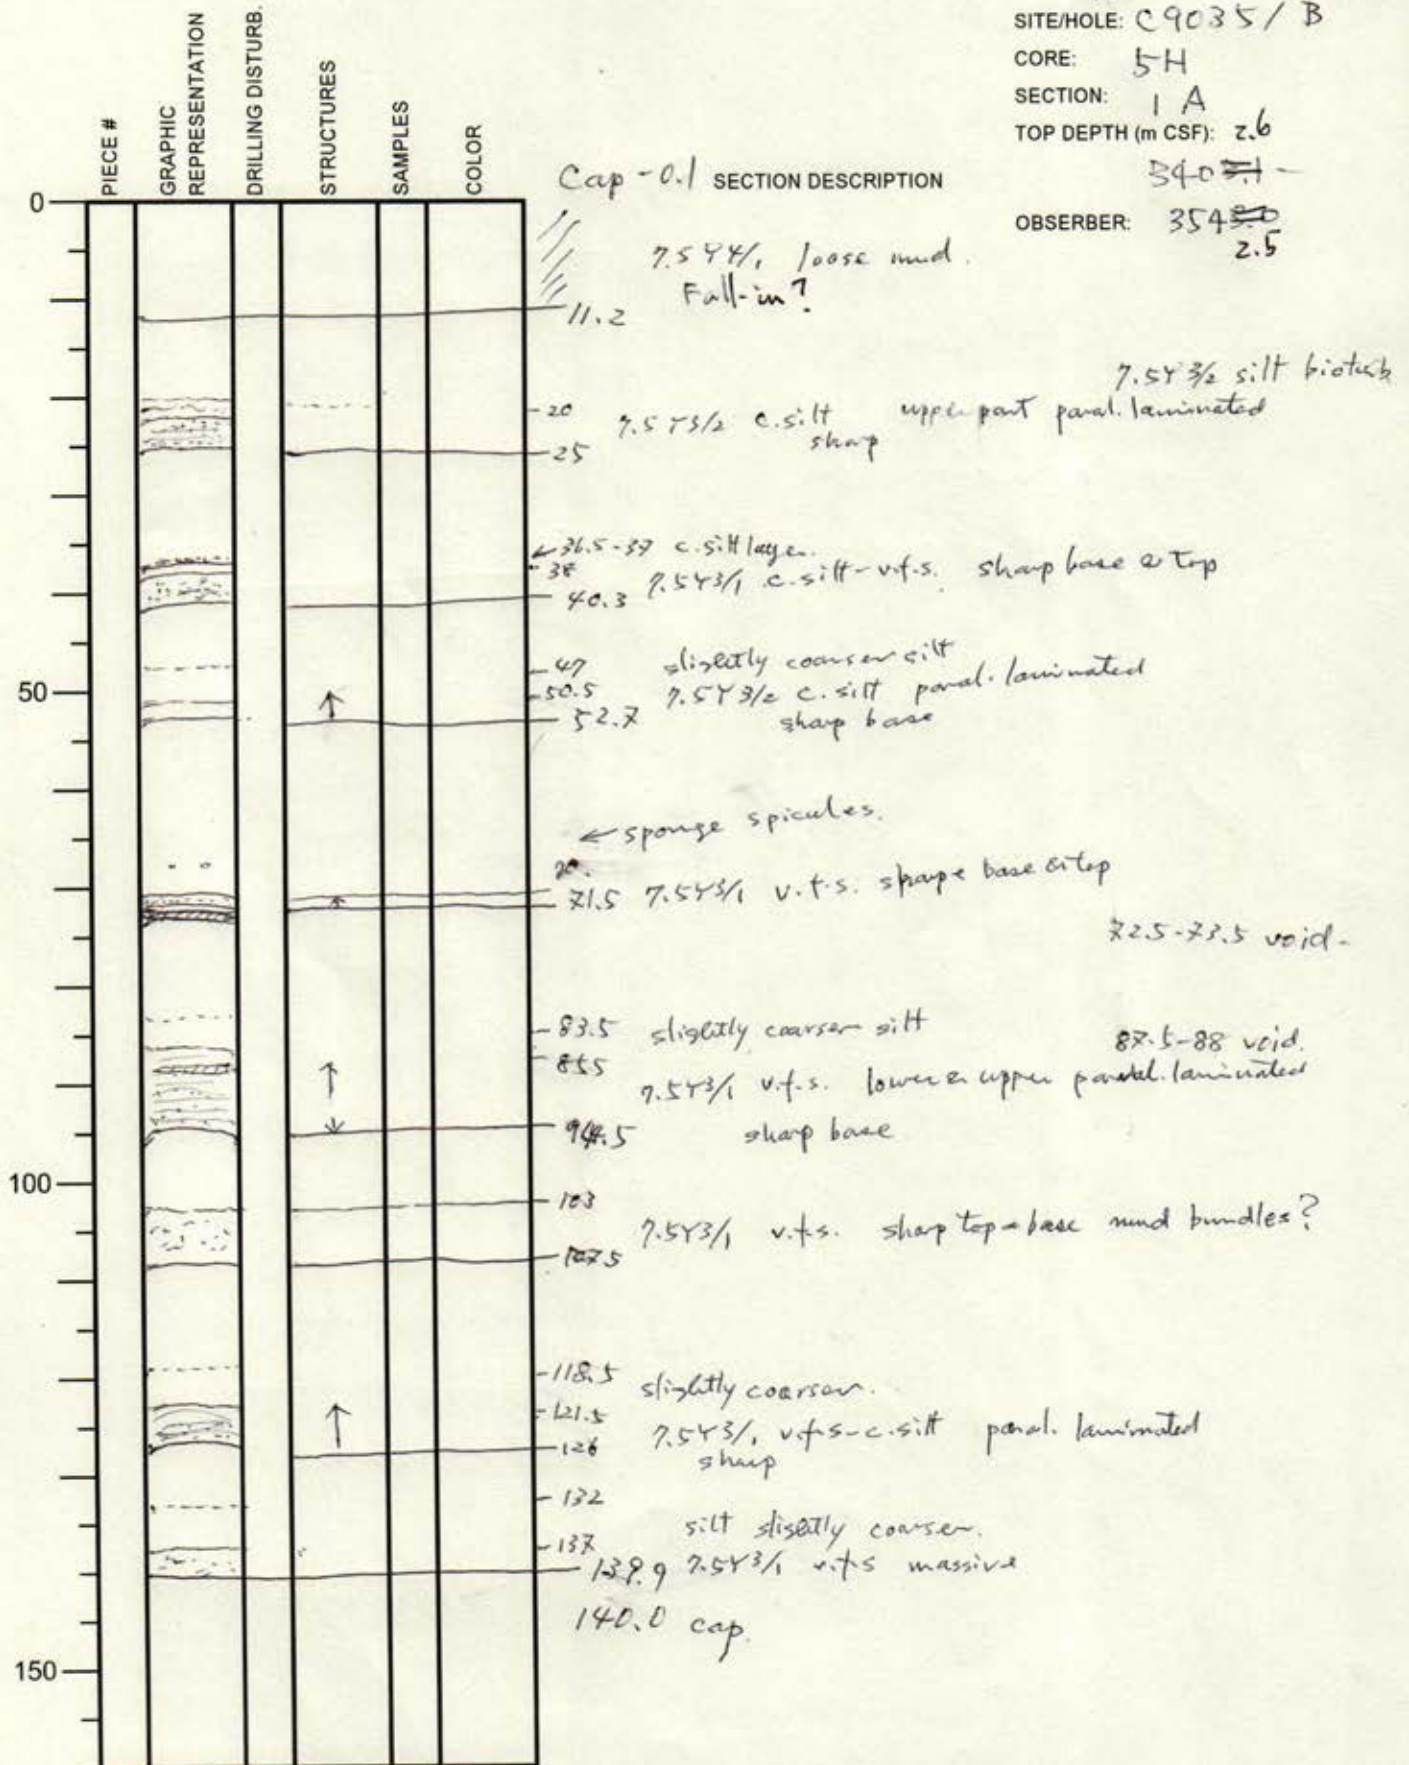 SITE/HOLE: C9035 / B
CORE: 5H
SECTION: 1 A
TOP DEPTH (m CSF): 2.6
340
OBSERBER: 354
2.5
PIECE #
GRAPHIC REPRESENTATION
DRILLING DISTURB.
STRUCTURES
SAMPLES
COLOR
Cap -0.1 SECTION DESCRIPTION
0
7.5Y4/1 loose mud.
Fall-in?
11.2
7.5Y 3/2 silt bioturb
20 7.5Y3/2 c.silt upper part paral. laminated
sharp
25
←36.5-37 c.silt layer.
38 7.5Y3/1 c.silt-v.f.s. sharp base & top
40.3
47 slightly coarser silt
50
50.5 7.5Y 3/2 c.silt paral. laminated
52.7 sharp base
← sponge spicules.
71.5 7.5Y3/1 v.f.s. sharpe base & top
72.5-73.5 void-
83.5 slightly coarser silt
87.5-88 void.
85.5
7.5Y3/1 v.f.s. lower & upper paral. laminated
94.5 sharp base
100
103
7.5Y3/1 v.f.s. sharp top & base mud bundles?
107.5
118.5 slightly coarser.
121.5
7.5Y3/1 v.f.s-c.silt paral. laminated
126 sharp
132
silt slightly coarser.
137
139.9 7.5Y3/1 v.f.s massive
140.0 cap.
150